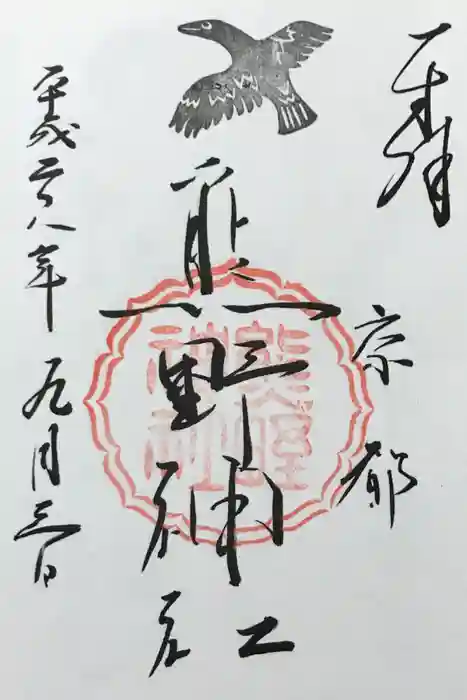 奉拝
京都
熊野神社
熊野神社
平成二八年九月三日